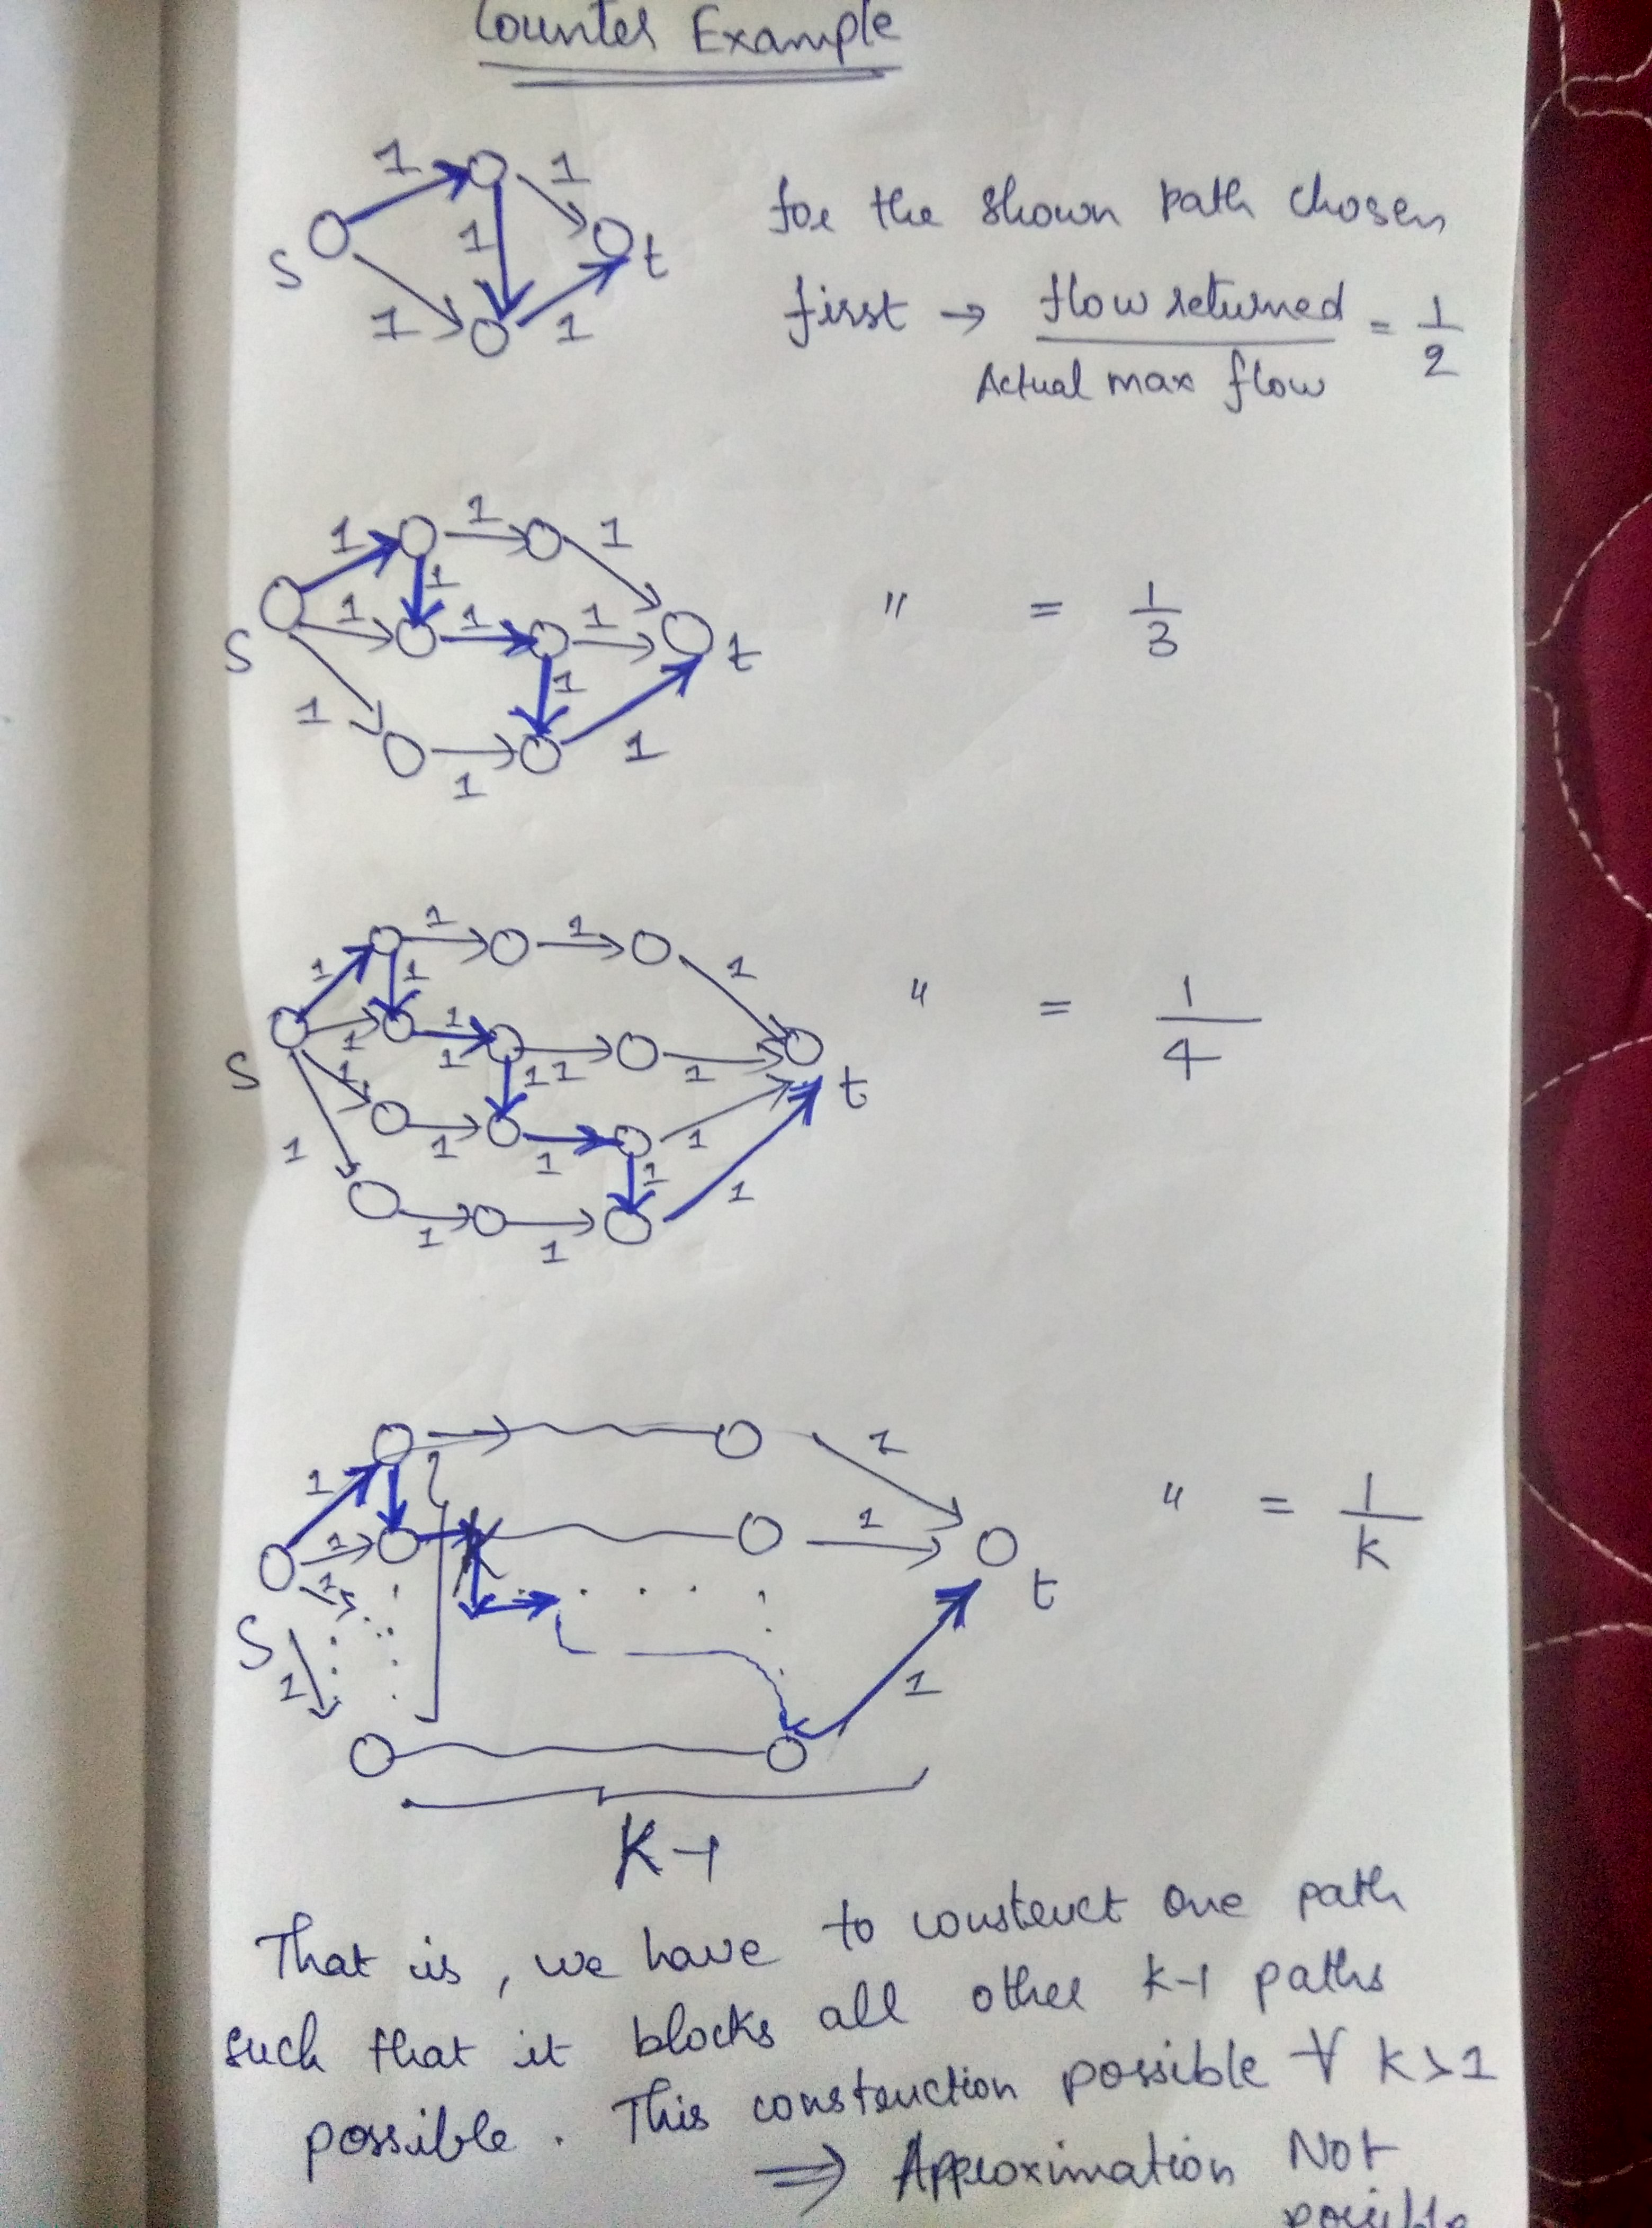 Counter Example
1 1
1
S t
1 1
for the shown path chosen
first → flow returned / Actual max flow = 1/2
1 1 1
1
1 1 1
S t
1
1 1
1
" = 1/3
1 1
1 1 1
1 1
1 1 1 1
S 1 t
1 1 1
1 1
1 1
1
" = 1/4
1
1
1 1
1
S t
1 1
" = 1/k
K-1
That is, we have to construct one path
such that it blocks all other k-1 paths
possible. This construction possible ∀ k>1
⇒ Approximation Not
possible